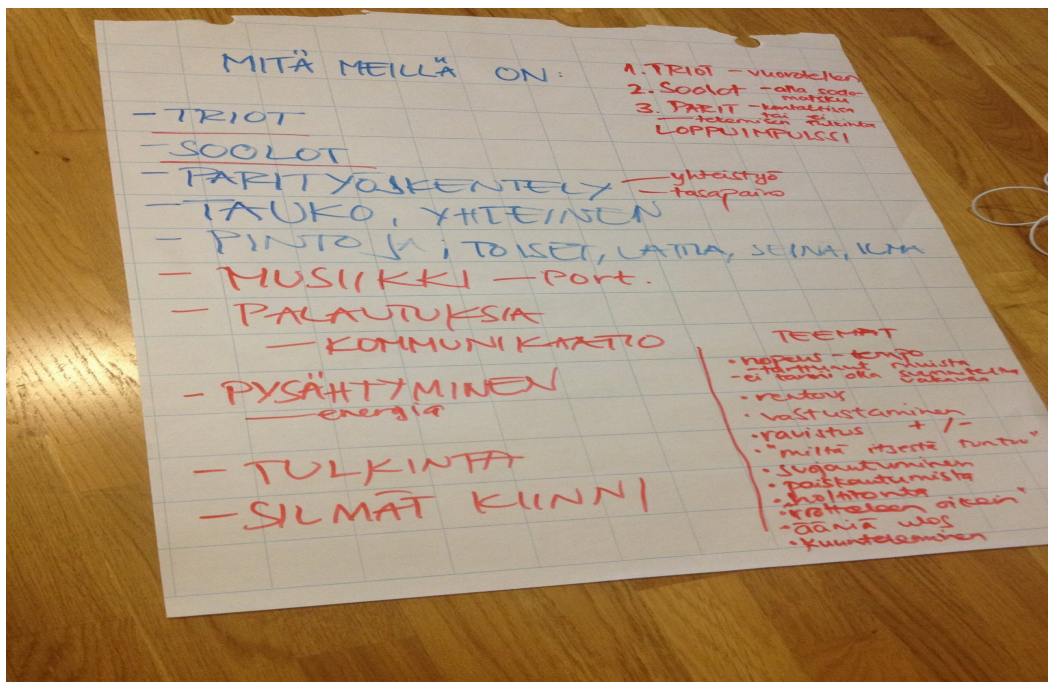 MITÄ MEILLÄ ON:
- TRIOT
- SOOLOT
- PARITYÖSKENTELY — yhteistyö
— tasapaino
- TAUKO, YHTEINEN
- PINTOJA; TOISET, LATTIA, SEINÄ, ILMA
- MUSIIKKI — Port.
- PALAUTUKSIA
— KOMMUNIKAATIO
- PYSÄHTYMINEN
— energia
- TULKINTA
- SILMÄT KIINNI
1. TRIOT - vuorotellen
2. Soolot - oma soolo-
matsku
3. PARIT - kontaktissa
tai ei
— tekemisen tulkinta
LOPPUIMPULSSI
TEEMAT
• nopeus - tempo
- tarttunut muista
- ei tarvi olla
• rentous
• vastustaminen
• ravistus + / -
• "miltä itsestä tuntuu"
• suojautuminen
• paiskautumista
• holtitonta
oikein"
- ääniä ulos
• kuunteleminen